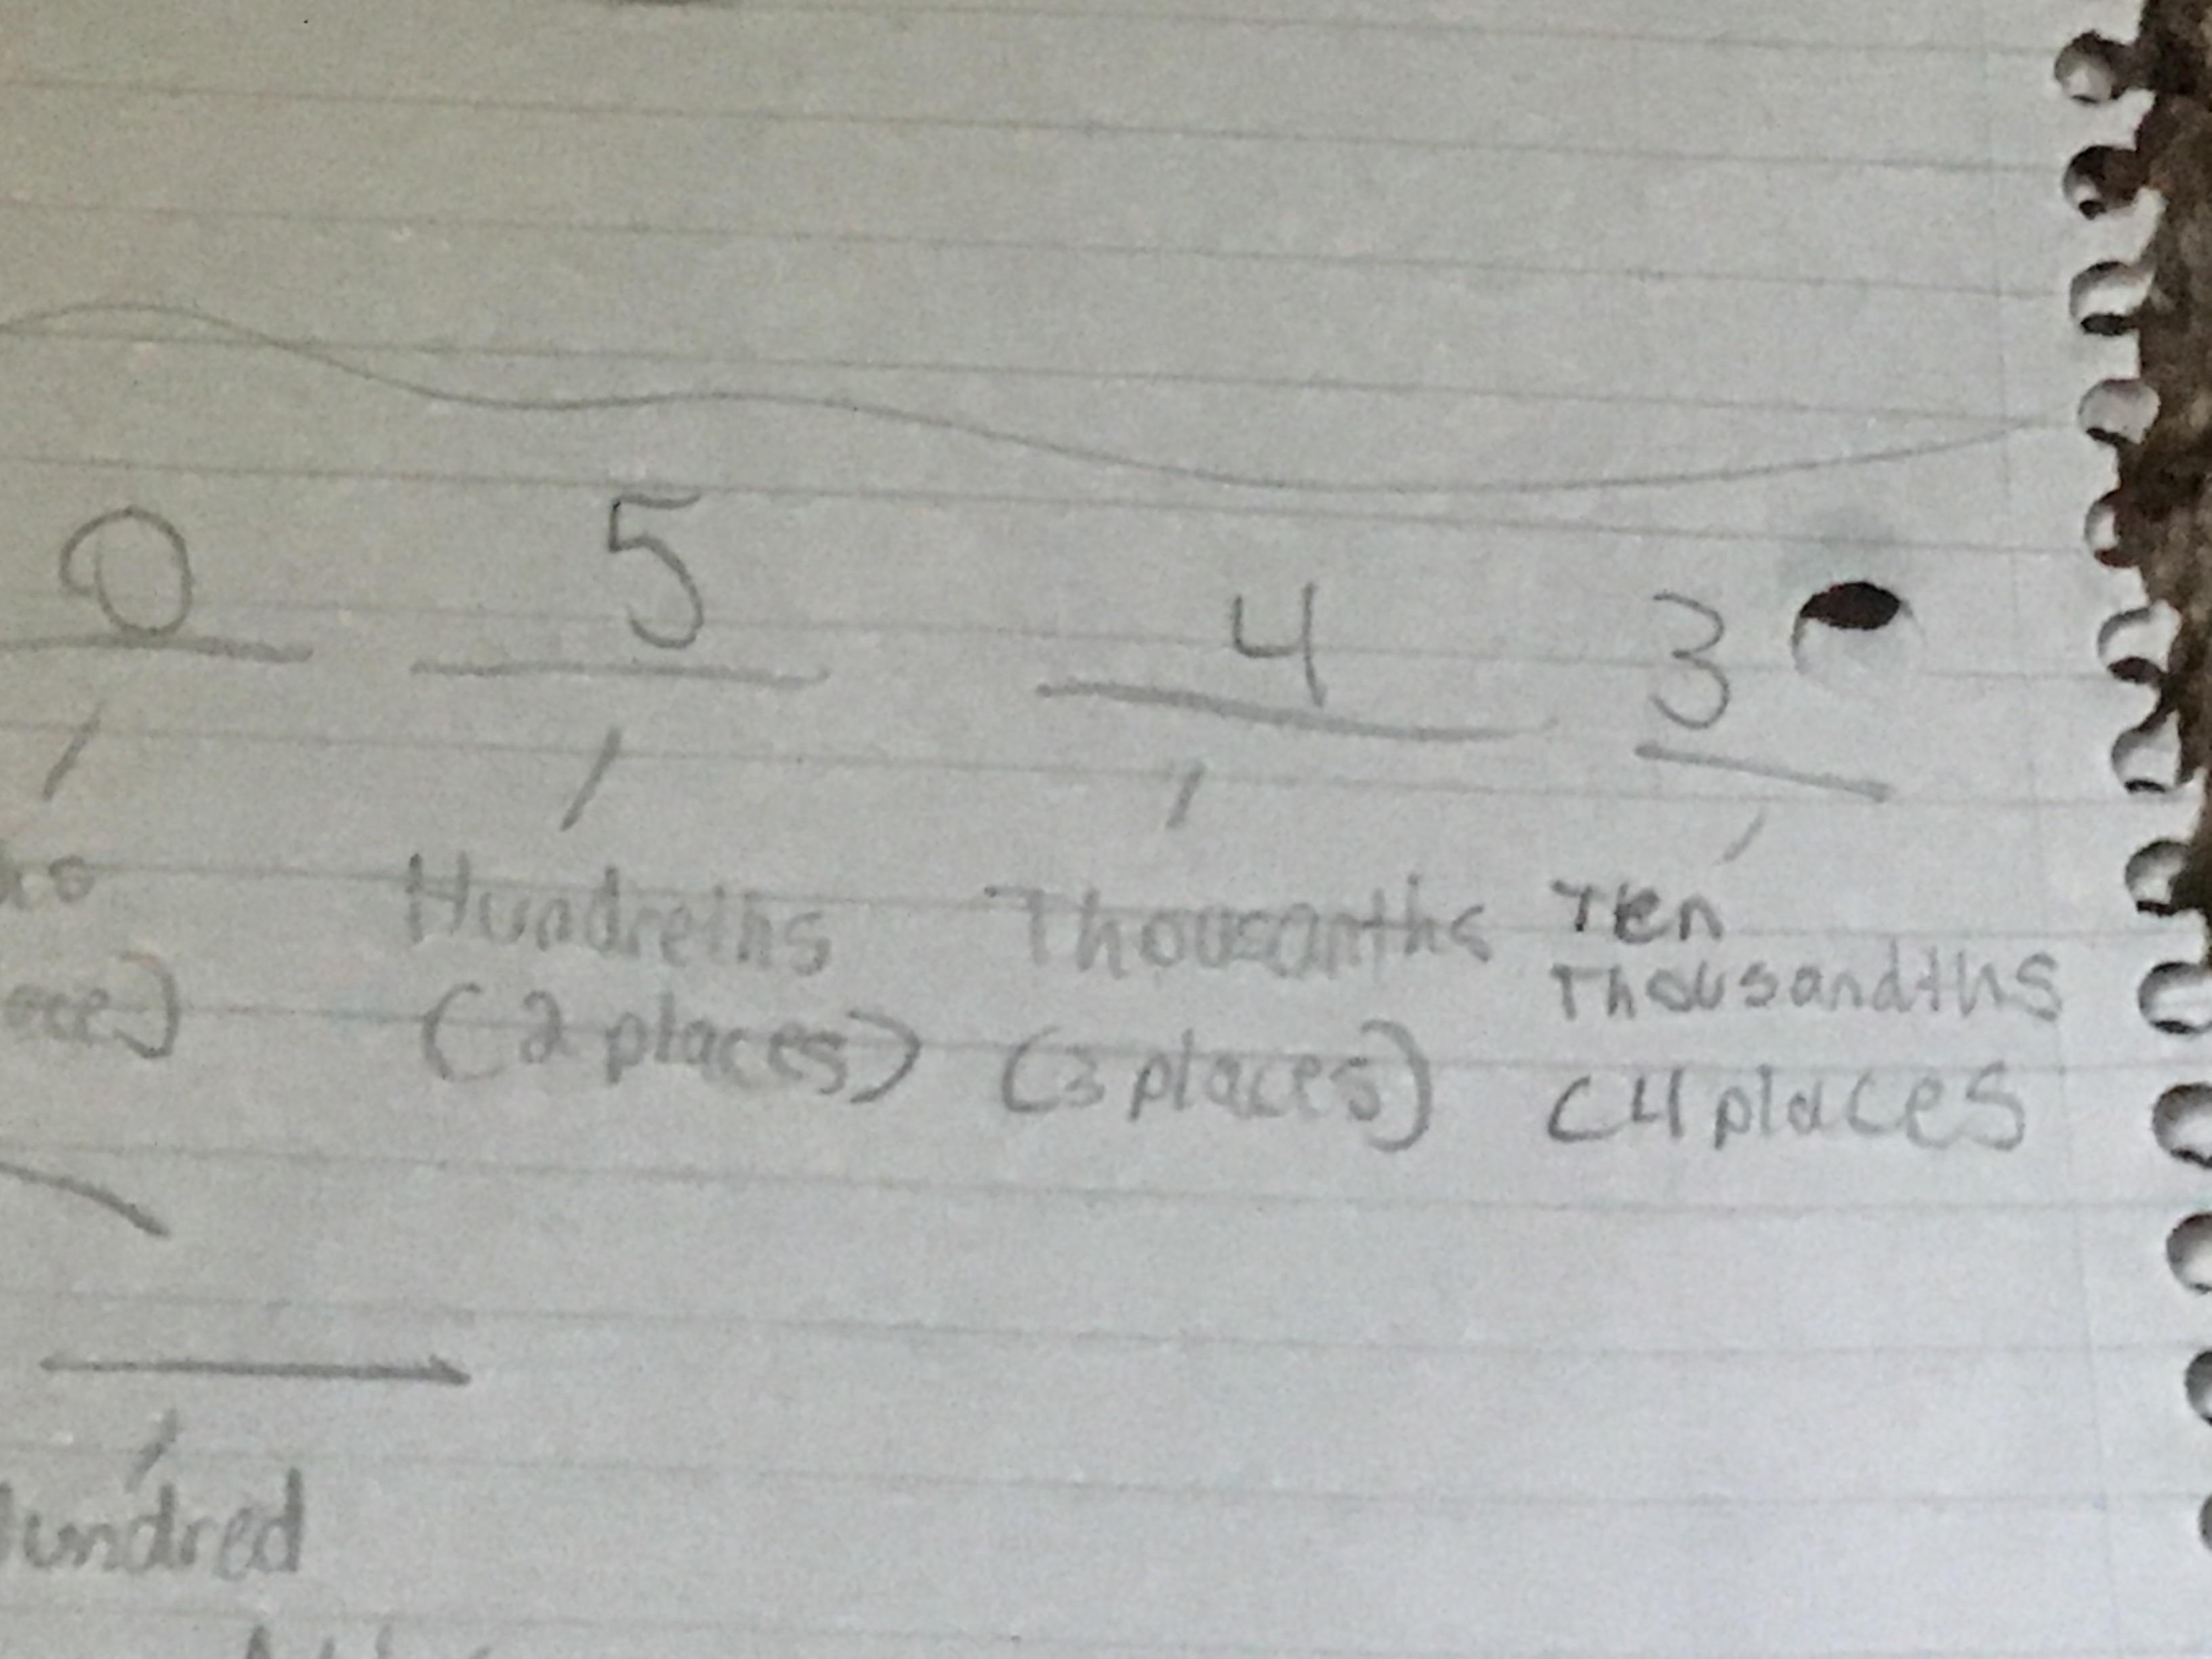 0 5 4 3
Hundreths Thousanths Ten
Thousandths
(2 places) (3 places) (4 places